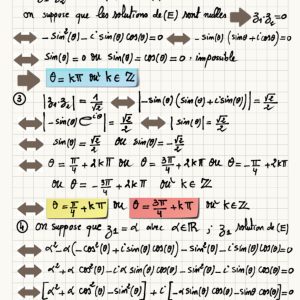 on suppose que les solutions de (E) sont nulles ➡ z₁·z₂ = 0
⬌ -sin²(θ) - i sin(θ)cos(θ) = 0 ⬌ -sin(θ) (sinθ + icosθ) = 0
⬌ sin(θ) = 0 ou sin(θ) = cos(θ) = 0 : impossible
➡ θ = kπ où k ∈ ℤ
③ |z₁·z₂| = 1/√2 ⬌ |-sin(θ) (sin(θ) + i sin(θ))| = √2/2
⬌ |-sin(θ) e^{iθ}| = √2/2 ⬌ |sin(θ)| = √2/2
⬌ sin(θ) = √2/2 ou sin(θ) = -√2/2
⬌ θ = π/4 + 2kπ ou θ = 3π/4 + 2kπ ou θ = -π/4 + 2kπ
ou θ = -3π/4 + 2kπ où k ∈ ℤ
⬌ θ = π/4 + kπ ou θ = 3π/4 + kπ où k ∈ ℤ
④ on suppose que z₁ = α avec α ∈ ℝ ; z₁ solution de (E)
⬌ α² - α(-cos²(θ) + i sin(θ)cos(θ)) - sin²(θ) - i sin(θ)cos(θ) = 0
⬌ α² + α cos²(θ) - iα sin(θ)cos(θ) - sin²(θ) - i sin(θ)cos(θ) = 0
⬌ [α² + α cos²(θ) - sin²(θ)] + i[-α sin(θ)cos(θ) - sinθ cosθ] = 0